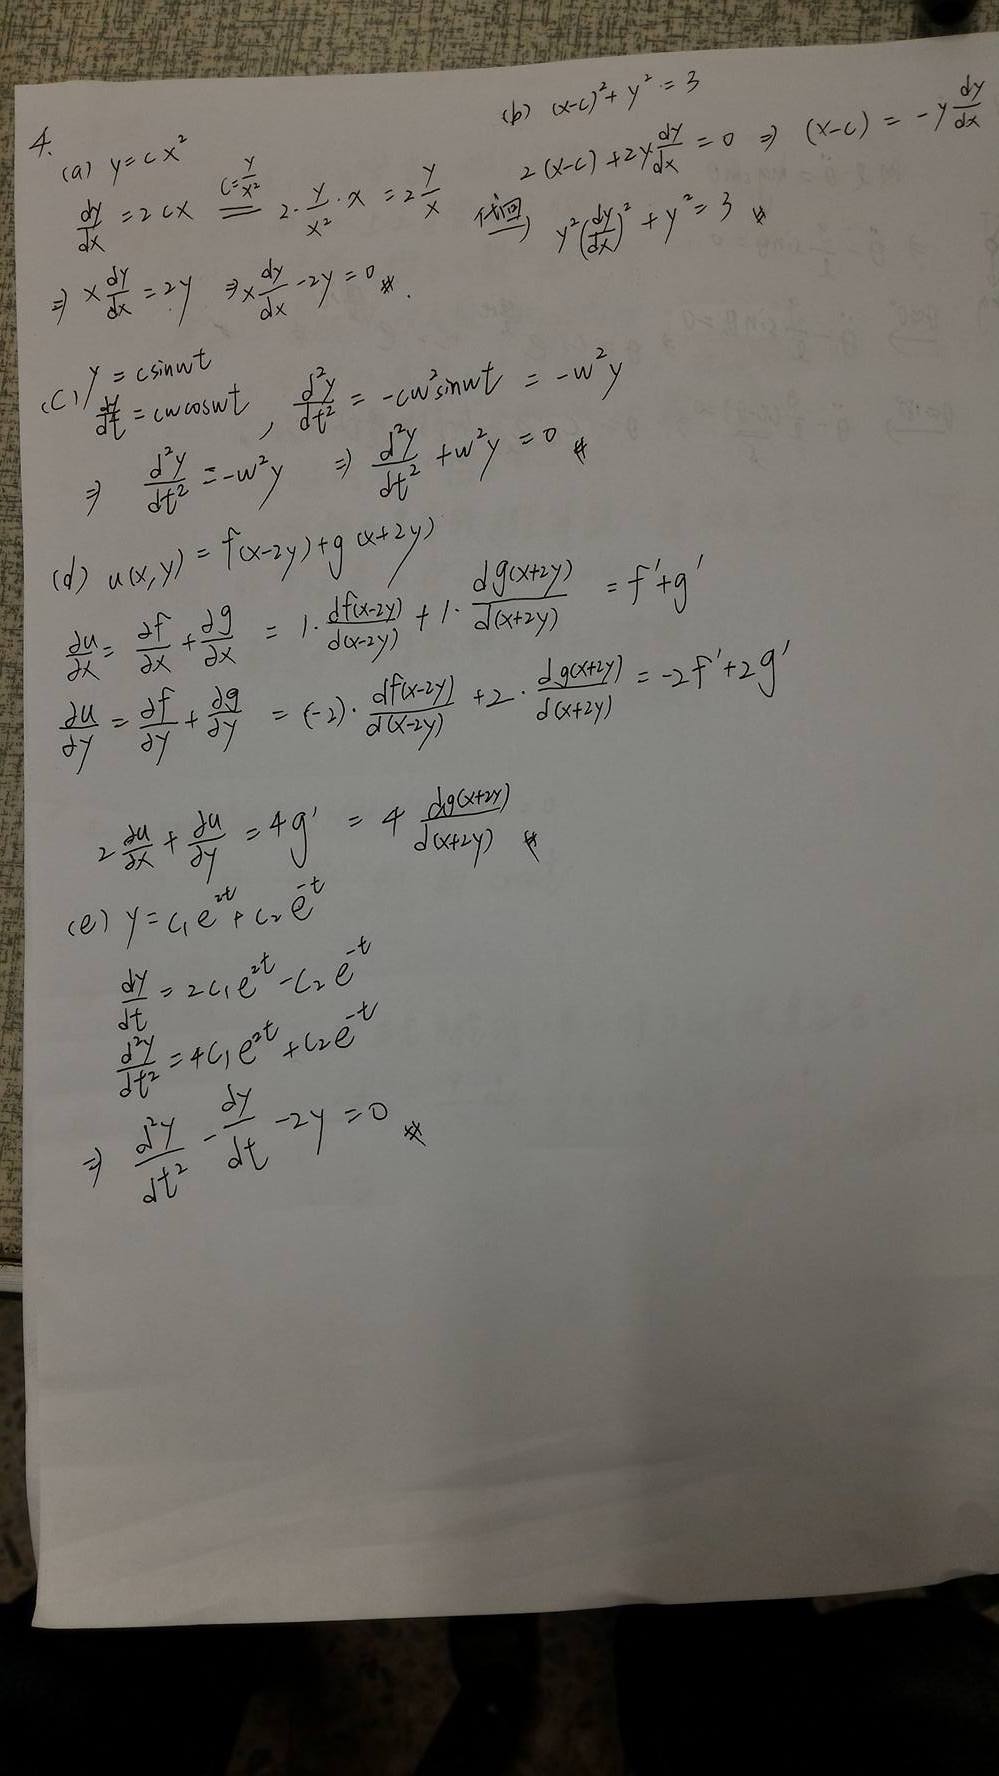 4.
(a) y = cx²
dy/dx = 2cx =(c=y/x²)= 2·y/x²·x = 2 y/x
⇒ x dy/dx = 2y ⇒ x dy/dx - 2y = 0 #.
(b) (x-c)² + y² = 3
2(x-c) + 2y dy/dx = 0 ⇒ (x-c) = -y dy/dx
代回⇒ y²(dy/dx)² + y² = 3 #
(c) y = c sinwt
dy/dt = cw coswt , d²y/dt² = -cw² sinwt = -w²y
⇒ d²y/dt² = -w²y ⇒ d²y/dt² + w²y = 0 #
(d) u(x,y) = f(x-2y) + g(x+2y)
∂u/∂x = ∂f/∂x + ∂g/∂x = 1·df(x-2y)/d(x-2y) + 1·dg(x+2y)/d(x+2y) = f' + g'
∂u/∂y = ∂f/∂y + ∂g/∂y = (-2)·df(x-2y)/d(x-2y) + 2·dg(x+2y)/d(x+2y) = -2f' + 2g'
2 ∂u/∂x + ∂u/∂y = 4g' = 4 dg(x+2y)/d(x+2y) #
(e) y = c₁e^2t + c₂e^-t
dy/dt = 2c₁e^2t - c₂e^-t
d²y/dt² = 4c₁e^2t + c₂e^-t
⇒ d²y/dt² - dy/dt - 2y = 0 #